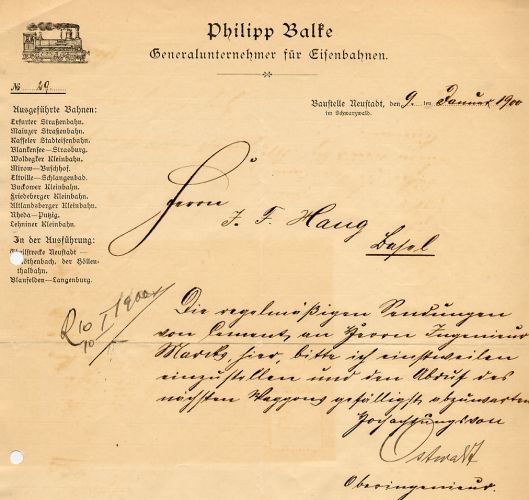 Philipp Balke
Generalunternehmer für Eisenbahnen.
№ 29
Baustelle Neustadt, den 9. ten Januar 1900
im Schwarzwald.
Ausgeführte Bahnen:
Erfurter Straßenbahn.
Mainzer Straßenbahn.
Kasseler Stadteisenbahn.
Blankensee—Strasburg.
Waldegker Kleinbahn.
Mirow—Buschhof.
Eltville—Schlangenbad.
Buckower Kleinbahn.
Friedeberger Kleinbahn.
Altlandsberger Kleinbahn.
Rheda—Putzig.
Lehniner Kleinbahn.
In der Ausführung:
Theilstrecke Neustadt—
Röthenbach, der Höllen-
thalbahn.
Blaufelden—Langenburg.
Herrn
J. F. Haug
Basel
R 10/10 I 1900
Die regelmäßigen Sendungen
von Cement, an Herrn Ingenieur
hier, bitte ich einstweilen
einzustellen und den Abruf des
nächsten Waggons gefälligst abzuwarten
Hochachtungsvoll
Ostwald
Oberingenieur.